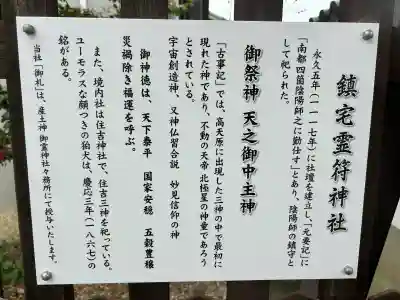 鎮宅霊符神社
永久五年(一一一七年)に社壇を建立し、「元要記」に
「南都四箇陰陽師之に勤仕す」とあり、陰陽師の鎮守と
して祀られた。
御祭神 天之御中主神
「古事記」では、高天原に出現した三神の中で最初に
現れた神であり、不動の天帝 北極星の神霊であろう
とされている。
宇宙創造神、又神仏習合説 妙見信仰の神
御神徳は、天下泰平 国家安穏 五穀豊穣
災禍除き福運を呼ぶ。
また、境内社は住吉神社で、住吉三神を祀っている。
ユーモラスな顔つきの狛犬は、慶応三年(一八六七)の
銘がある。
当社「御札」は、産土神 御霊神社々務所にて授与いたします。